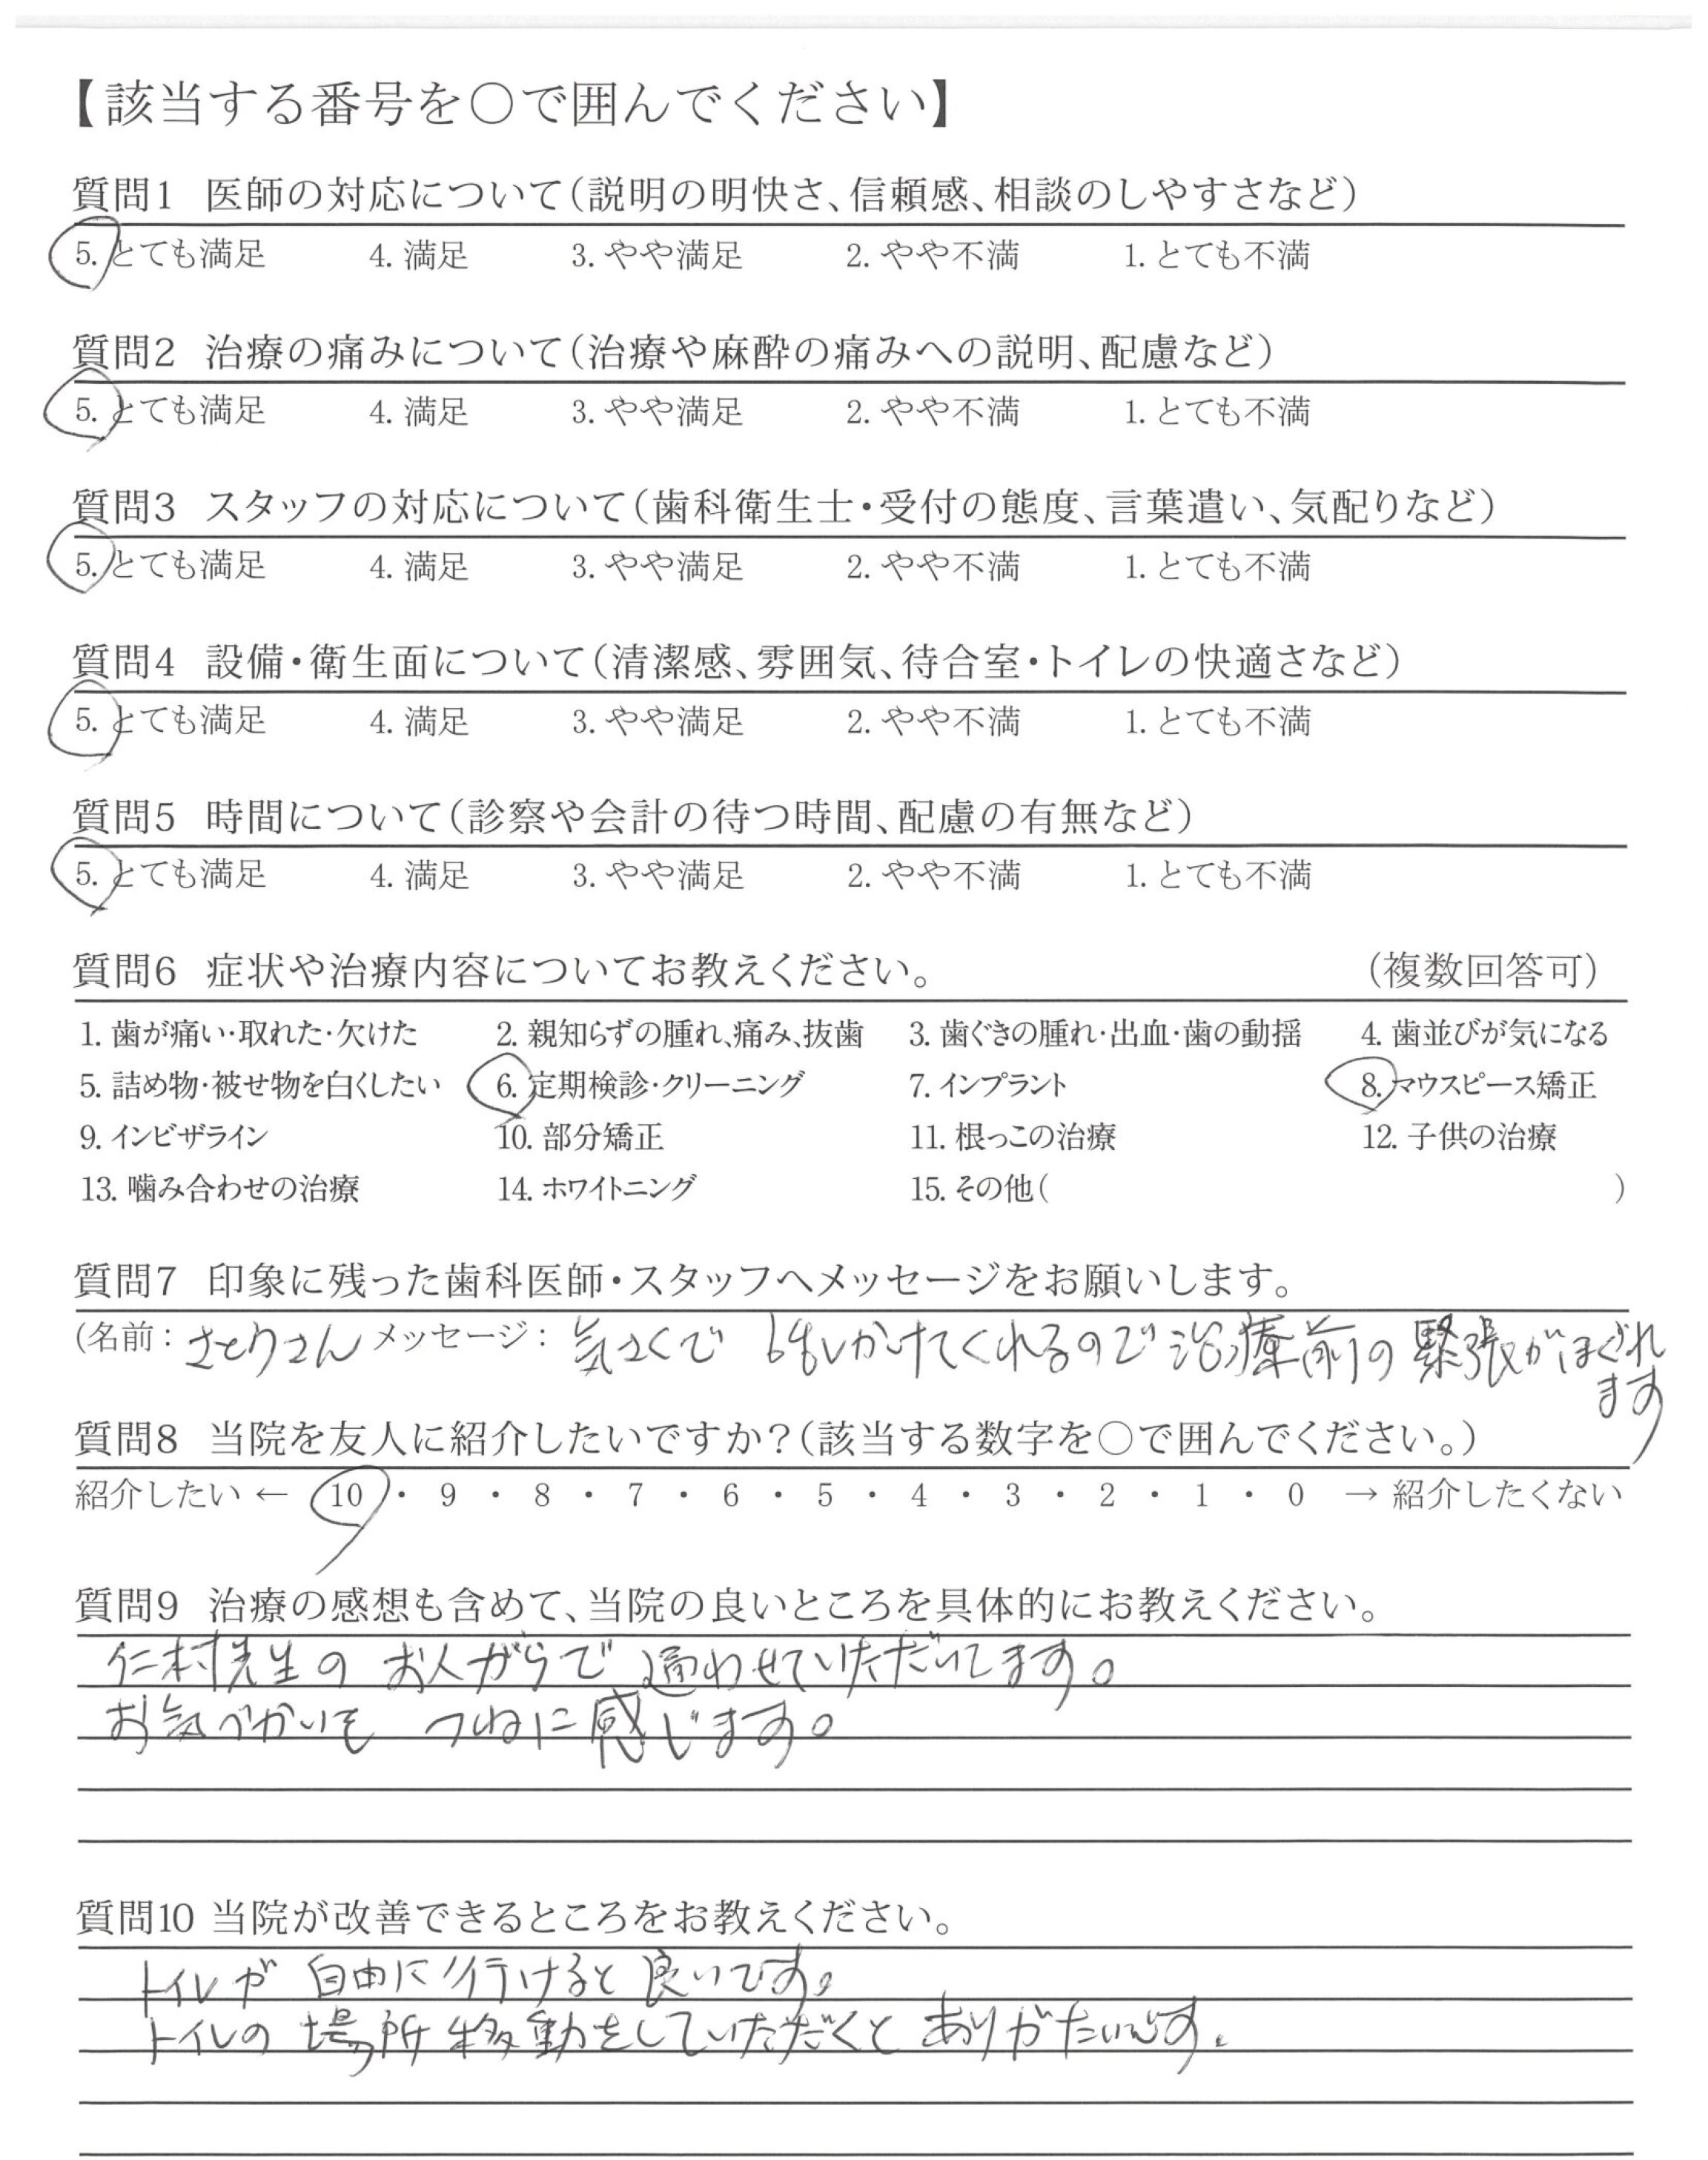 【該当する番号を〇で囲んでください】
質問1 医師の対応について(説明の明快さ、信頼感、相談のしやすさなど)
5. とても満足 4. 満足 3. やや満足 2. やや不満 1. とても不満
質問2 治療の痛みについて(治療や麻酔の痛みへの説明、配慮など)
5. とても満足 4. 満足 3. やや満足 2. やや不満 1. とても不満
質問3 スタッフの対応について(歯科衛生士・受付の態度、言葉遣い、気配りなど)
5. とても満足 4. 満足 3. やや満足 2. やや不満 1. とても不満
質問4 設備・衛生面について(清潔感、雰囲気、待合室・トイレの快適さなど)
5. とても満足 4. 満足 3. やや満足 2. やや不満 1. とても不満
質問5 時間について(診察や会計の待つ時間、配慮の有無など)
5. とても満足 4. 満足 3. やや満足 2. やや不満 1. とても不満
質問6 症状や治療内容についてお教えください。 (複数回答可)
1. 歯が痛い・取れた・欠けた 2. 親知らずの腫れ、痛み、抜歯 3. 歯ぐきの腫れ・出血・歯の動揺 4. 歯並びが気になる
5. 詰め物・被せ物を白くしたい 6. 定期検診・クリーニング 7. インプラント 8. マウスピース矯正
9. インビザライン 10. 部分矯正 11. 根っこの治療 12. 子供の治療
13. 噛み合わせの治療 14. ホワイトニング 15. その他( )
質問7 印象に残った歯科医師・スタッフへメッセージをお願いします。
(名前: さとりさん メッセージ: 気さくで 話しかけてくれるので治療前の緊張がほぐれ
ます
質問8 当院を友人に紹介したいですか?(該当する数字を〇で囲んでください。)
紹介したい ← 10 ・ 9 ・ 8 ・ 7 ・ 6 ・ 5 ・ 4 ・ 3 ・ 2 ・ 1 ・ 0 → 紹介したくない
質問9 治療の感想も含めて、当院の良いところを具体的にお教えください。
仁村先生の お人がらで 通わせていただいてます。
お気づかいも つねに感じます。
質問10 当院が改善できるところをお教えください。
トイレが 自由に行けると良いです。
トイレの 場所移動をしていただくと ありがたいです。